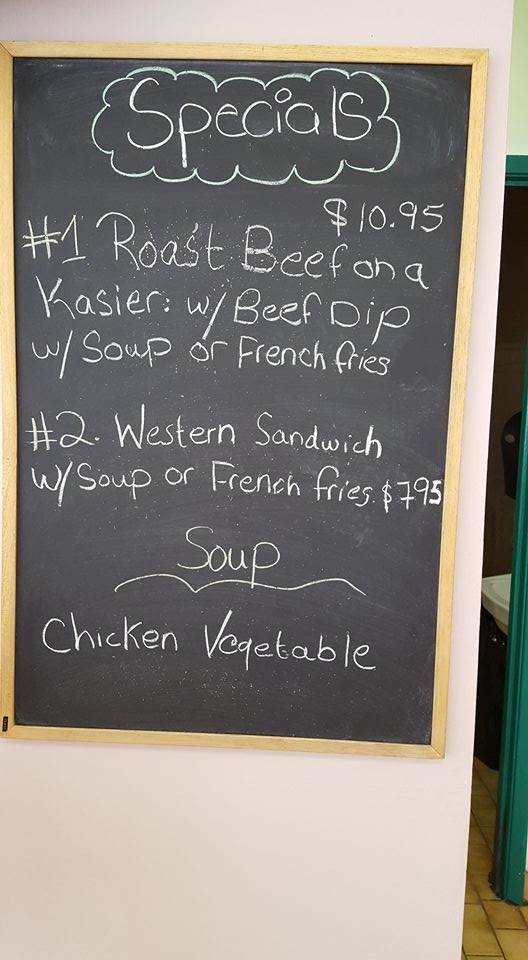 Specials
$10.95
#1 Roast Beef on a
Kasier: w/ Beef Dip
w/ Soup or French fries
#2. Western Sandwich
w/ Soup or French fries $795
Soup
Chicken Vegetable